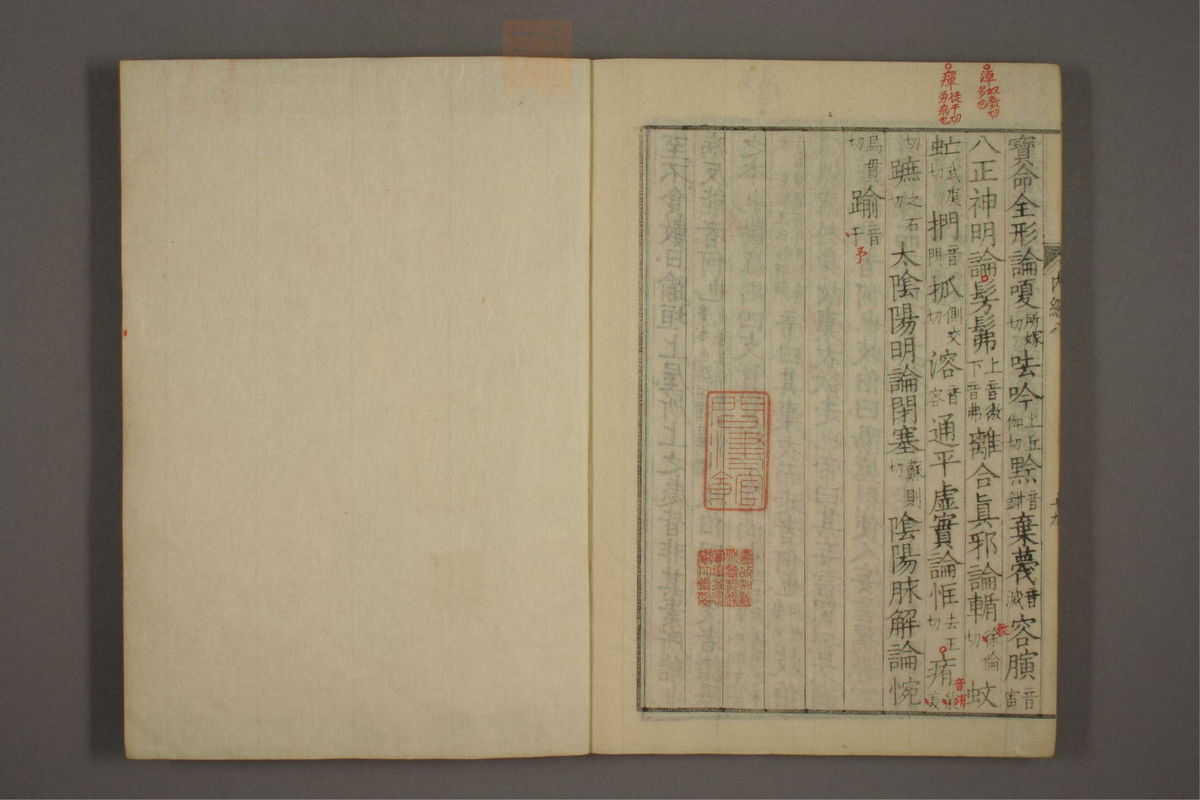 淖奴教切
多也
癉徒干切
勞病也
寶命全形論嗄所嫁切呿吟上丘伽切黔音鉗棄蔑音滅容䐜音寅
八正神明論髣髴上音倣下音弗離合眞邪論輴敕倫切蚊
虻武庚切捫音門抓側交切溶音容通平虛實論恇去王切㾪音渻
切蹠之石切太陰陽明論閉塞蘇則切陰陽脉解論惋
烏貫切踰音予
內經八
十九